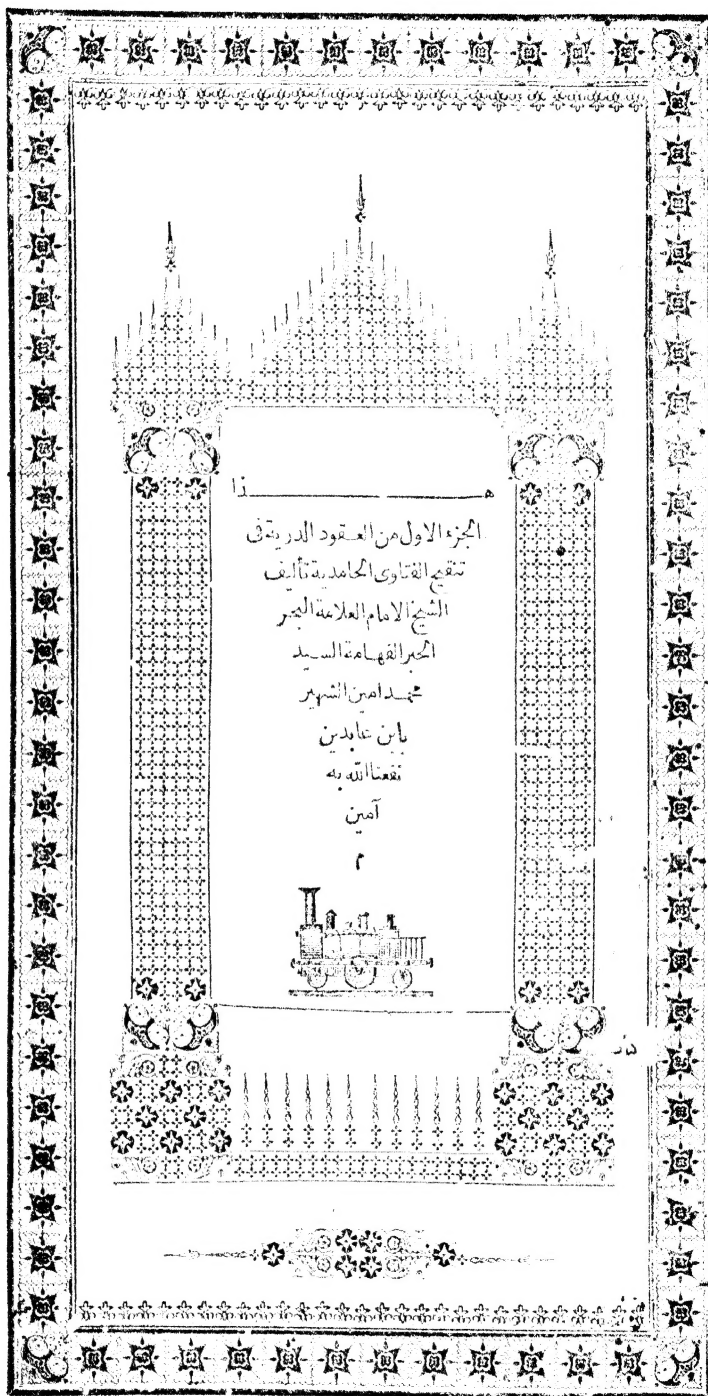 هـــــــذا
الجزء الاول من العقود الدرية فى
تنقيح الفتاوى الحامدية تأليف
الشيخ الامام العلامة البحر
الحبر الفهامة السيد
محمد امين الشهير
بابن عابدين
نفعنا الله به
آمين
م